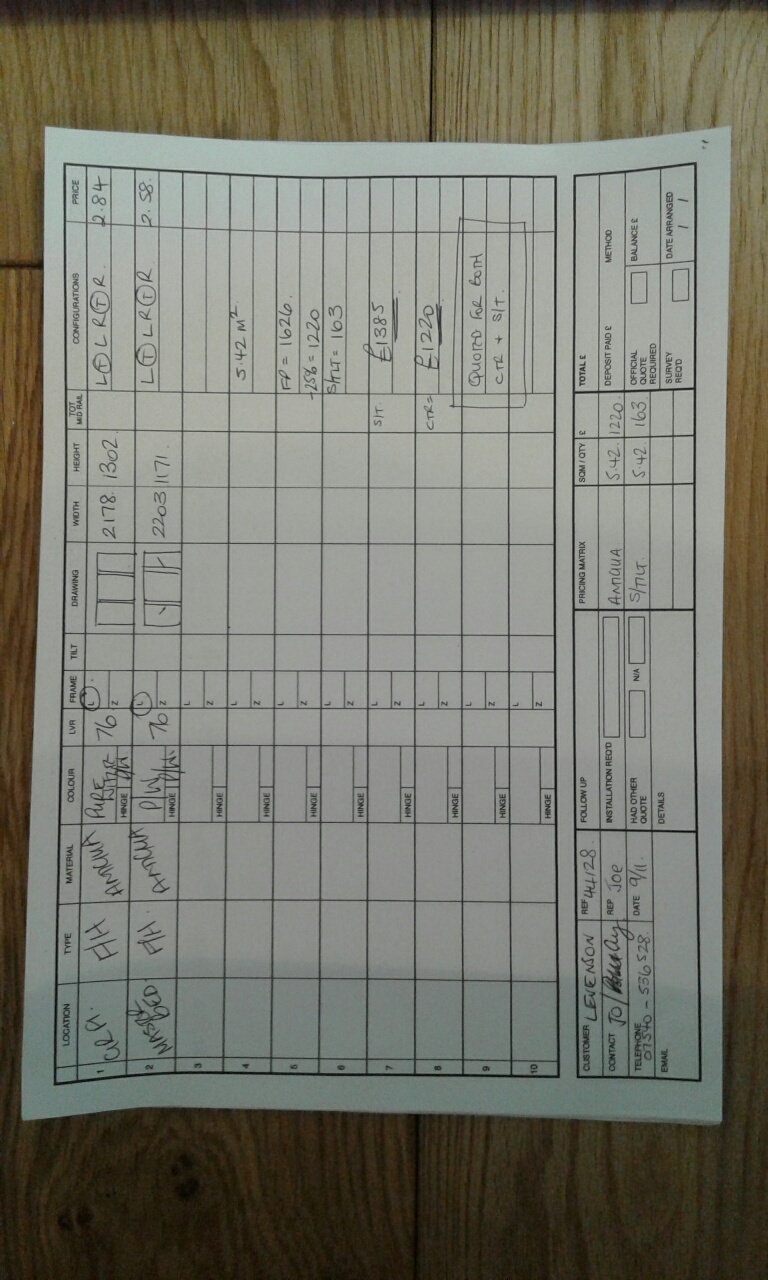 LOCATION TYPE MATERIAL COLOUR LVR FRAME TILT DRAWING WIDTH HEIGHT TOT MID RAIL CONFIGURATIONS PRICE
1 F/H ANTIGUA PURE HINGE 76 L Z 2178. 1302. L T L R T R. 2.84
2 MASTER BED F/H. ANTIGUA P/W HINGE 76 L Z 2203 1171. L T L R T R 2.58.
3 HINGE L Z
4 HINGE L Z 5.42 M²
5 HINGE L Z FP = 1626.
-25% = 1220
6 HINGE L Z S/TILT = 163
7 HINGE L Z S/T. £1385
8 HINGE L Z CTR = £1220
9 HINGE L Z QUOTED FOR BOTH
CTR + S/T.
10 HINGE L Z
CUSTOMER LEVENSON REF 44128.
CONTACT JO/ REP JOE
TELEPHONE 07540 - 536528. DATE 9/11.
EMAIL
FOLLOW UP
INSTALLATION REQ'D
HAD OTHER QUOTE N/A
DETAILS
PRICING MATRIX SQM / QTY £
ANTIGUA 5.42. 1220
S/TILT. 5.42. 163
TOTAL £
DEPOSIT PAID £ METHOD
OFFICIAL QUOTE REQUIRED BALANCE £
SURVEY REQ'D DATE ARRANGED / /